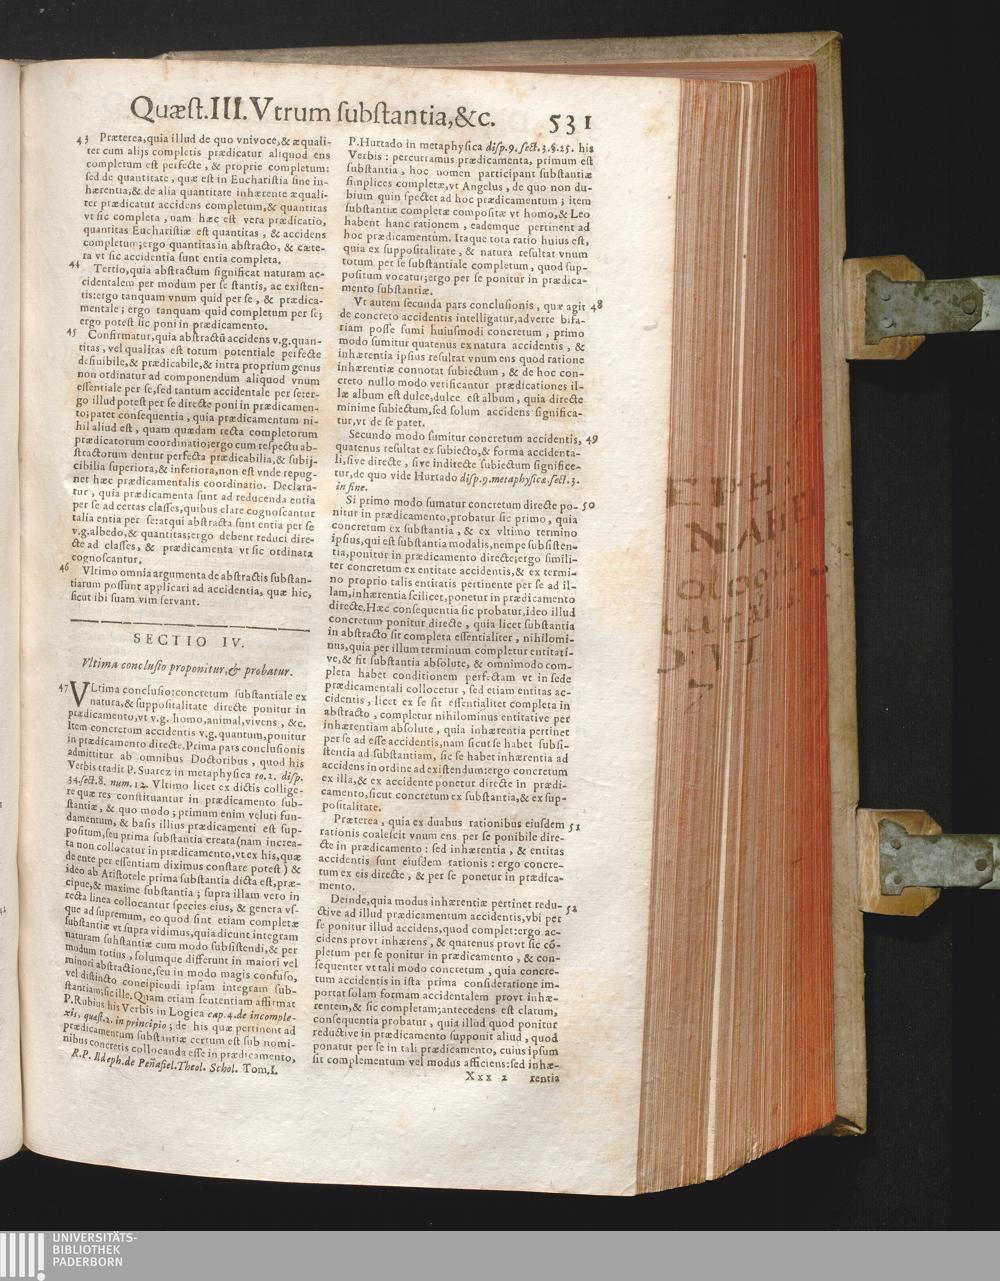 Quæst.III.Vtrum substantia,&c. 531
43 Præterea,quia illud de quo vnivoce,& æquali-
ter cum alijs completis prædicatur aliquod ens
completum est perfecte, & proprie completum:
sed de quantitate, quæ est in Eucharistia sine in-
hærentia,& de alia quantitate inhærente æquali-
ter prædicatur accidens completum,& quantitas
vt sic completa, nam hæc est vera prædicatio,
quantitas Eucharistiæ est quantitas, & accidens
completum;ergo quantitas in abstracto, & cæte-
ra vt sic accidentia sunt entia completa.
44 Tertio,quia abstractum significat naturam ac-
cidentalem per modum per se stantis, ac existen-
tis:ergo tanquam vnum quid per se, & prædica-
mentale; ergo tanquam quid completum per se;
ergo potest sic poni in prædicamento.
45 Confirmatur,quia abstractū accidens v.g.quan-
titas, vel qualitas est totum potentiale perfecte
definibile,& prædicabile,& intra proprium genus
non ordinatur ad componendum aliquod vnum
essentiale per se,sed tantum accidentale per se:er-
go illud potest per se directe poni in prædicamen-
to; patet consequentia, quia prædicamentum ni-
hil aliud est, quam quædam recta completorum
prædicatorum coordinatio;ergo cum respectu ab-
stractorum dentur perfecta prædicabilia,& subij-
cibilia superiora,& inferiora,non est vnde repug-
net hæc prædicamentalis coordinatio. Declara-
tur, quia prædicamenta sunt ad reducenda entia
per se ad certas classes,quibus clare cognoscantur
talia entia per se:atqui abstracta sunt entia per se
v.g.albedo,& quantitas;ergo debent reduci dire-
cte ad classes, & prædicamenta vt sic ordinata
cognoscantur.
46 Vltimo omnia argumenta de abstractis substan-
tiarum possunt applicari ad accidentia, quæ hic,
sicut ibi suam vim servant.
SECTIO IV.
Vltima conclusio proponitur,& probatur.
47 VLtima conclusio:concretum substantiale ex
natura,& suppositalitate directe ponitur in
prædicamento,vt v.g. homo,animal,vivens, &c.
Item concretum accidentis v.g.quantum,ponitur
in prædicamento directe.Prima pars conclusionis
admittitur ab omnibus Doctoribus, quod his
Verbis tradit P.Suarez in metaphysica to.2. disp.
34.sect.8. num.12. Vltimo licet ex dictis collige-
re quæ res constituantur in prædicamento sub-
stantiæ, & quo modo; primum enim veluti fun-
damentum, & basis illius prædicamenti est sup-
positum,seu prima substantia creata(nam increa-
ta non collocatur in prædicamento,vt ex his,quæ
de ente per essentiam diximus constare potest) &
ideo ab Aristotele prima substantia dicta est,præ-
cipue,& maxime substantia; supra illam vero in
recta linea collocantur species eius, & genera vs-
que ad supremum, eo quod sint etiam completæ
substantiæ vt supra vidimus,quia dicunt integram
naturam substantiæ cum modo subsistendi,& per
modum totius, solumque differunt in maiori vel
minori abstractione,seu in modo magis confuso,
vel distincto concipiendi ipsam integram sub-
stantiam;sic ille. Quam etiam sententiam affirmat
P.Rubius his Verbis in Logica cap.4.de incomple-
xis, quæst.2. in principio; de his quæ pertinent ad
prædicamentum substantiæ certum est sub nomi-
nibus concretis collocanda esse in prædicamento,
R.P. Ildeph.de Peñafiel.Theol. Schol. Tom.I.
P.Hurtado in metaphysica disp.9.sect.3.§.25. his
Verbis: percurramus prædicamenta, primum est
substantia, hoc nomen participant substantiæ
simplices completæ,vt Angelus, de quo non du-
bium quin spectet ad hoc prædicamentum; item
substantiæ completæ compositæ vt homo,& Leo
habent hanc rationem, eademque pertinent ad
hoc prædicamentum. Itaque tota ratio huius est,
quia ex suppositalitate, & natura resultat vnum
totum per se substantiale completum, quod sup-
positum vocatur;ergo per se ponitur in prædica-
mento substantiæ.
Vt autem secunda pars conclusionis, quæ agit 48
de concreto accidentis intelligatur,adverte bifa-
riam posse sumi huiusmodi concretum, primo
modo sumitur quatenus ex natura accidentis, &
inhærentia ipsius resultat vnum ens quod ratione
inhærentiæ connotat subiectum, & de hoc con-
creto nullo modo verificantur prædicationes il-
læ album est dulce,dulce est album, quia directe
minime subiectum,sed solum accidens significa-
tur,vt de se patet.
Secundo modo sumitur concretum accidentis, 49
quatenus resultat ex subiecto,& forma accidenta-
li,sive directe, sive indirecte subiectum significe-
tur,de quo vide Hurtado disp.9.metaphysicæ.sect.3.
in fine.
Si primo modo sumatur concretum directe po- 50
nitur in prædicamento,probatur sic primo, quia
concretum ex substantia, & ex vltimo termino
ipsius,qui est substantia modalis,nempe subsisten-
tia,ponitur in prædicamento directe;ergo simili-
ter concretum ex entitate accidentis,& ex termi-
no proprio talis entitatis pertinente per se ad il-
lam,inhærentia scilicet,ponetur in prædicamento
directe.Hæc consequentia sic probatur,ideo illud
concretum ponitur directe, quia licet substantia
in abstracto sit completa essentialiter, nihilomi-
nus,quia per illum terminum completur entitati-
ve,& fit substantia absolute, & omnimodo com-
pleta habet conditionem perfectam vt in sede
prædicamentali collocetur, sed etiam entitas ac-
cidentis, licet ex se sit essentialiter completa in
abstracto, completur nihilominus entitative per
inhærentiam absolute, quia inhærentia pertinet
per se ad esse accidentis,nam sicut se habet subsi-
stentia ad substantiam, sic se habet inhærentia ad
accidens in ordine ad existendum:ergo concretum
ex illa,& ex accidente ponetur directe in prædi-
camento,sicut concretum ex substantia,& ex sup-
positalitate.
Præterea, quia ex duabus rationibus eiusdem 51
rationis coalescit vnum ens per se ponibile dire-
cte in prædicamento: sed inhærentia, & entitas
accidentis sunt eiusdem rationis: ergo concre-
tum ex eis directe, & per se ponetur in prædica-
mento.
Deinde,quia modus inhærentiæ pertinet redu- 52
ctive ad illud prædicamentum accidentis,vbi per
se ponitur illud accidens,quod complet:ergo ac-
cidens provt inhærens, & quatenus provt sic cō-
pletum per se ponitur in prædicamento, & con-
sequenter vt tali modo concretum, quia concre-
tum accidentis in ista prima consideratione im-
portat solam formam accidentalem provt inhæ-
rentem,& sic completam;antecedens est clarum,
consequentia probatur, quia illud quod ponitur
reductive in prædicamento supponit aliud, quod
ponatur per se in tali prædicamento, cuius ipsum
sit complementum vel modus afficiens:sed inhæ-
Xxx 2 rentia
UNIVERSITÄTS-
BIBLIOTHEK
PADERBORN